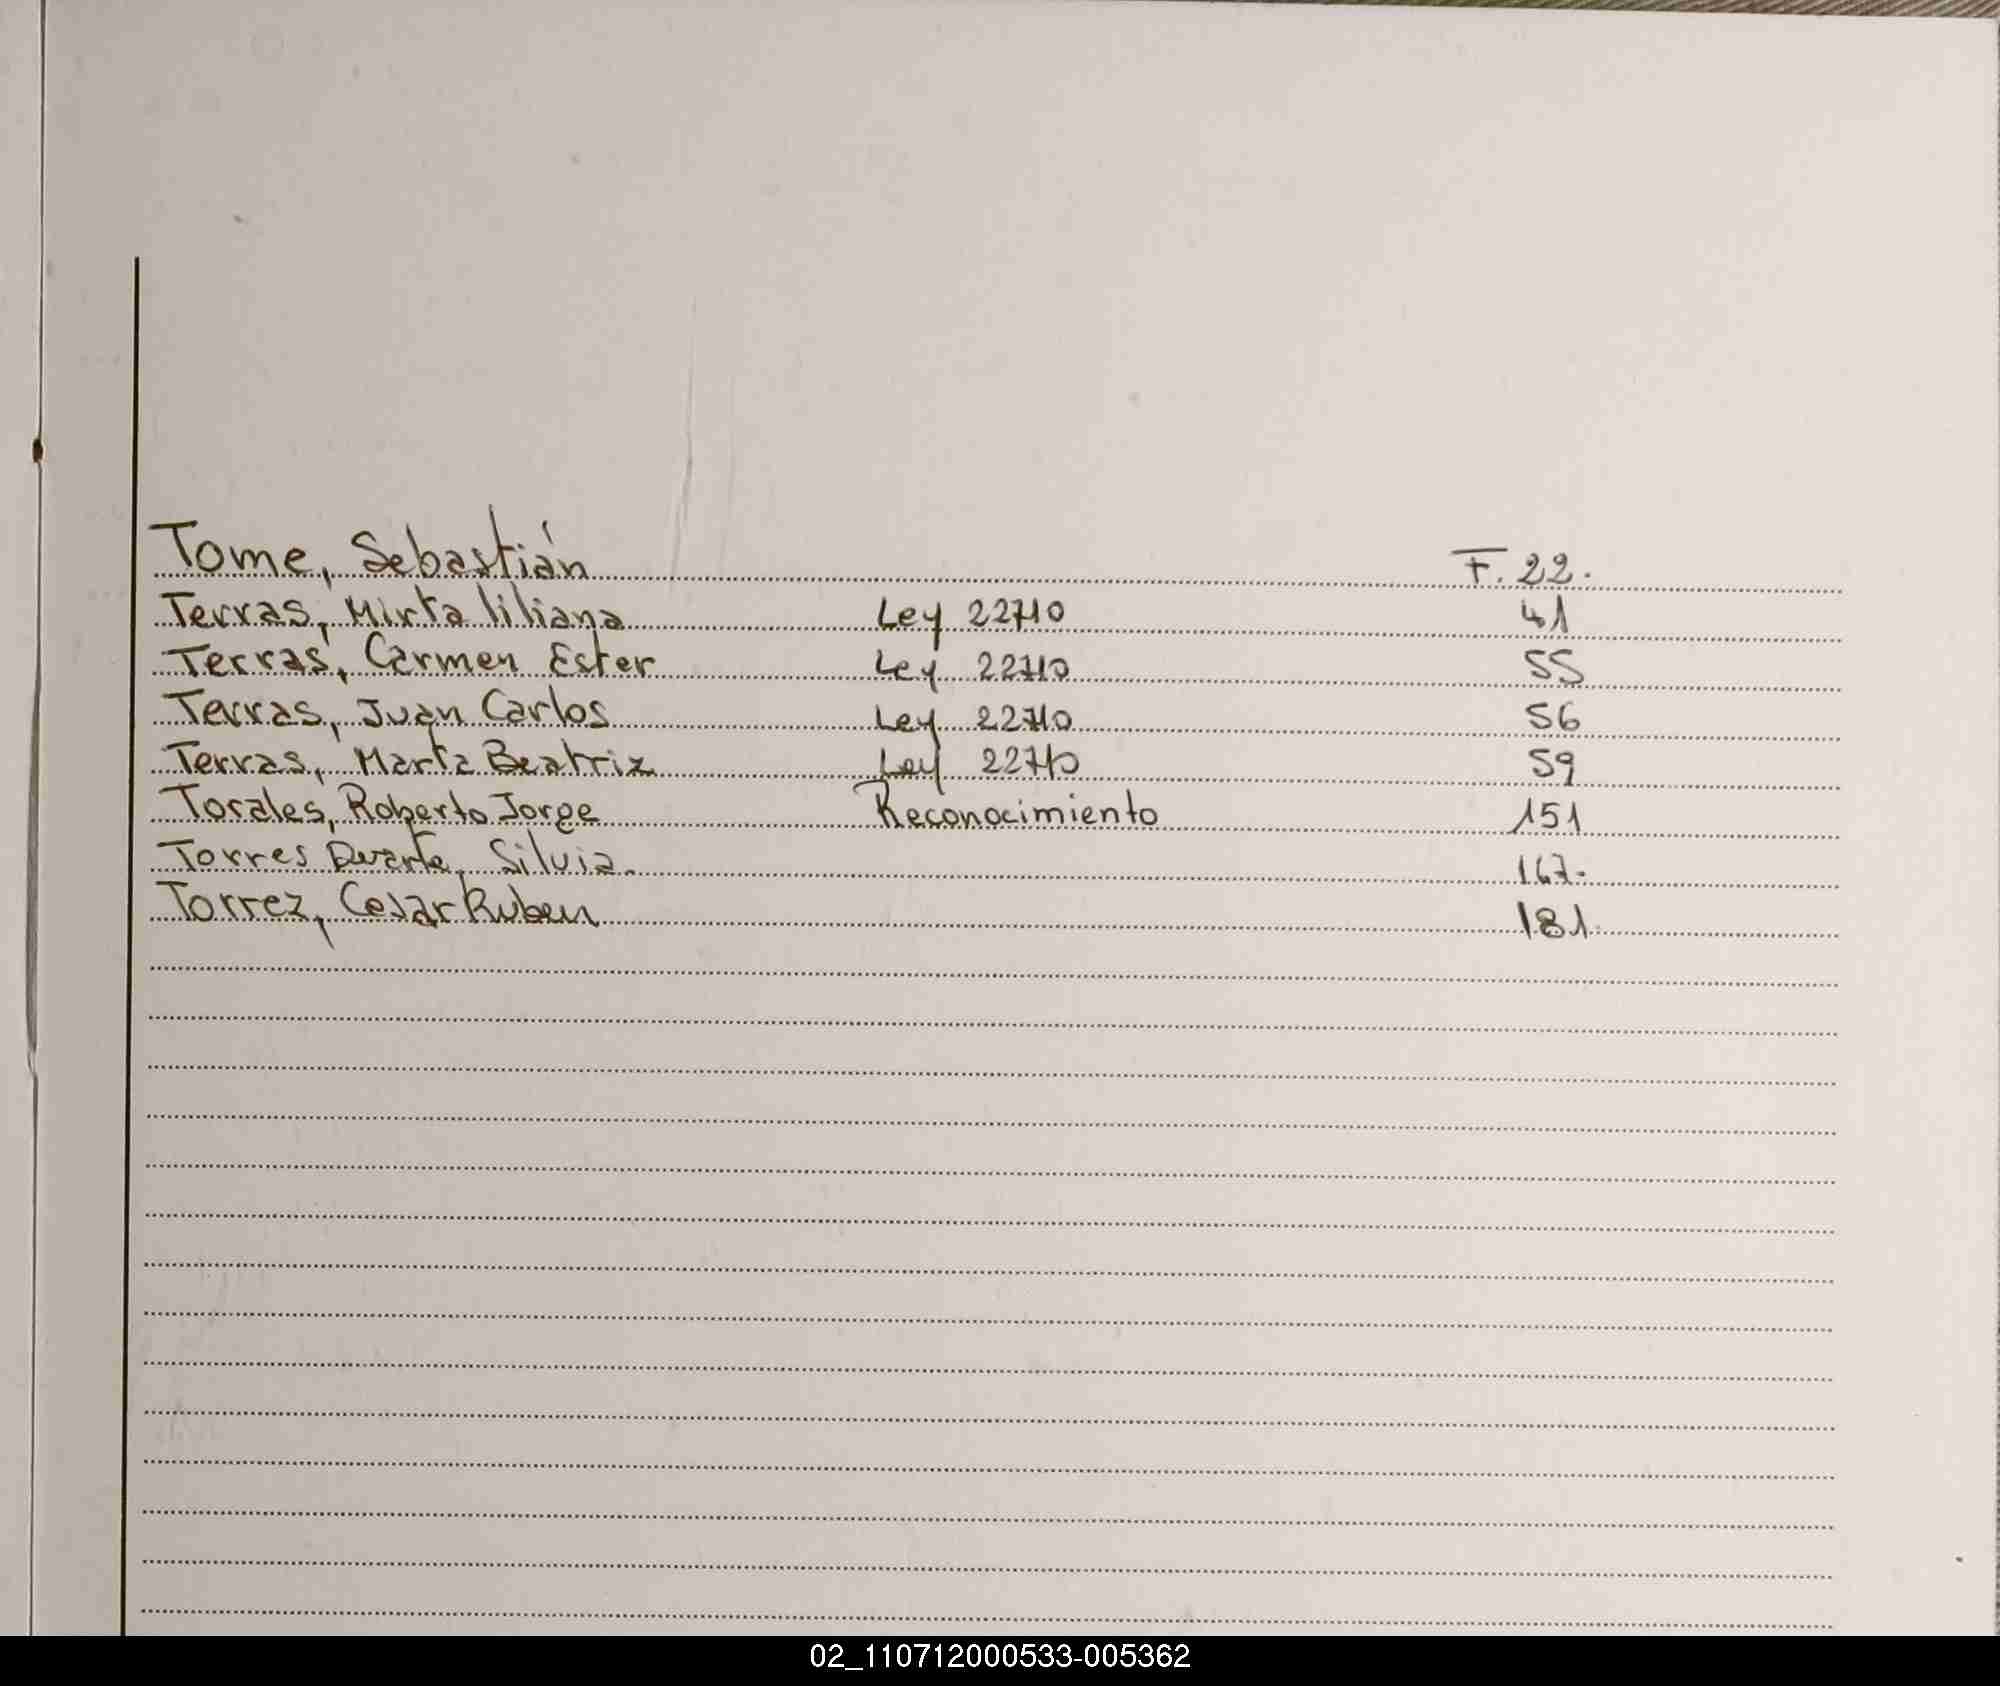 Tome, Sebastián F. 22.
Terras, Mirta liliana Ley 22710 41
Terras, Carmen Ester Ley 22710 55
Terras, Juan Carlos Ley 22710 56
Terras, Marta Beatriz Ley 22710 59
Torales, Roberto Jorge Reconocimiento 151
Torres Duarte, Silvia. 167.
Torrez, Cesar Ruben 181.
02_110712000533-005362